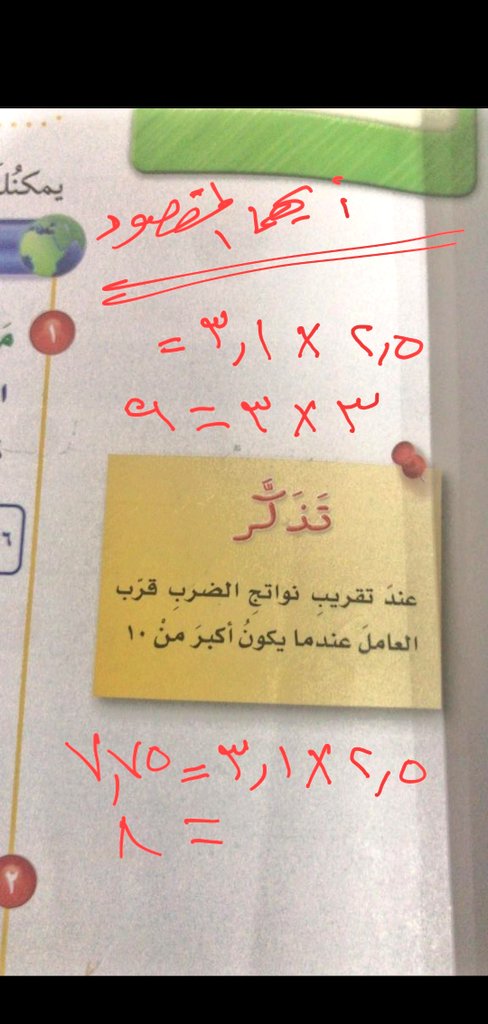 يمكنُك
أيهما المقصود
١
٢,٥ × ٣,١ =
٣ × ٣ = ٩
٦
تَذَكَّر
عندَ تقريبِ نواتجِ الضربِ قرّب
العاملَ عندما يكونُ أكبرَ منْ ١٠
٢,٥ × ٣,١ = ٧,٧٥
= ٨
٢